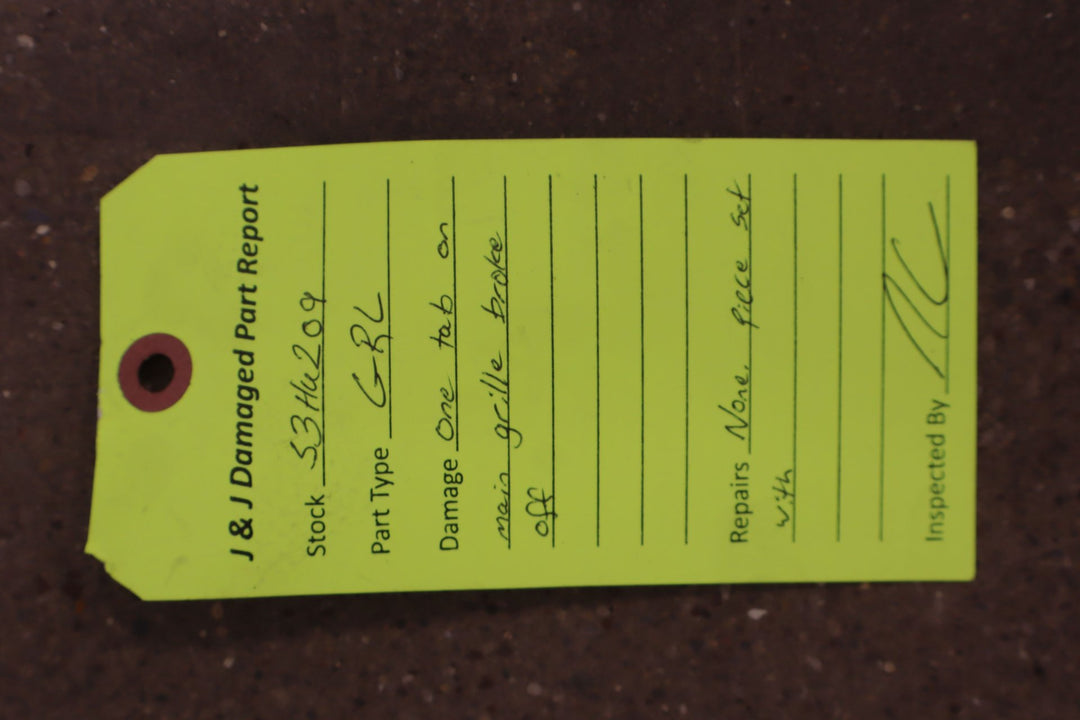 J & J Damaged Part Report
Stock S3HU209
Part Type GRL
Damage One tab on
main grille broke
off
Repairs None. Piece set
with
Inspected By